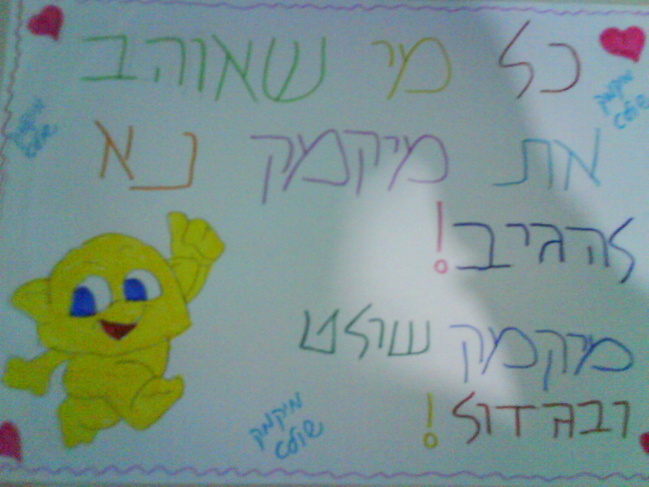 כל מי שאוהב
את מיקמק נא
להגיב!
מיקמק שולט
ובגדול!
מיקמק
שולט
מיקמק
שולט
מיקמק
שולט